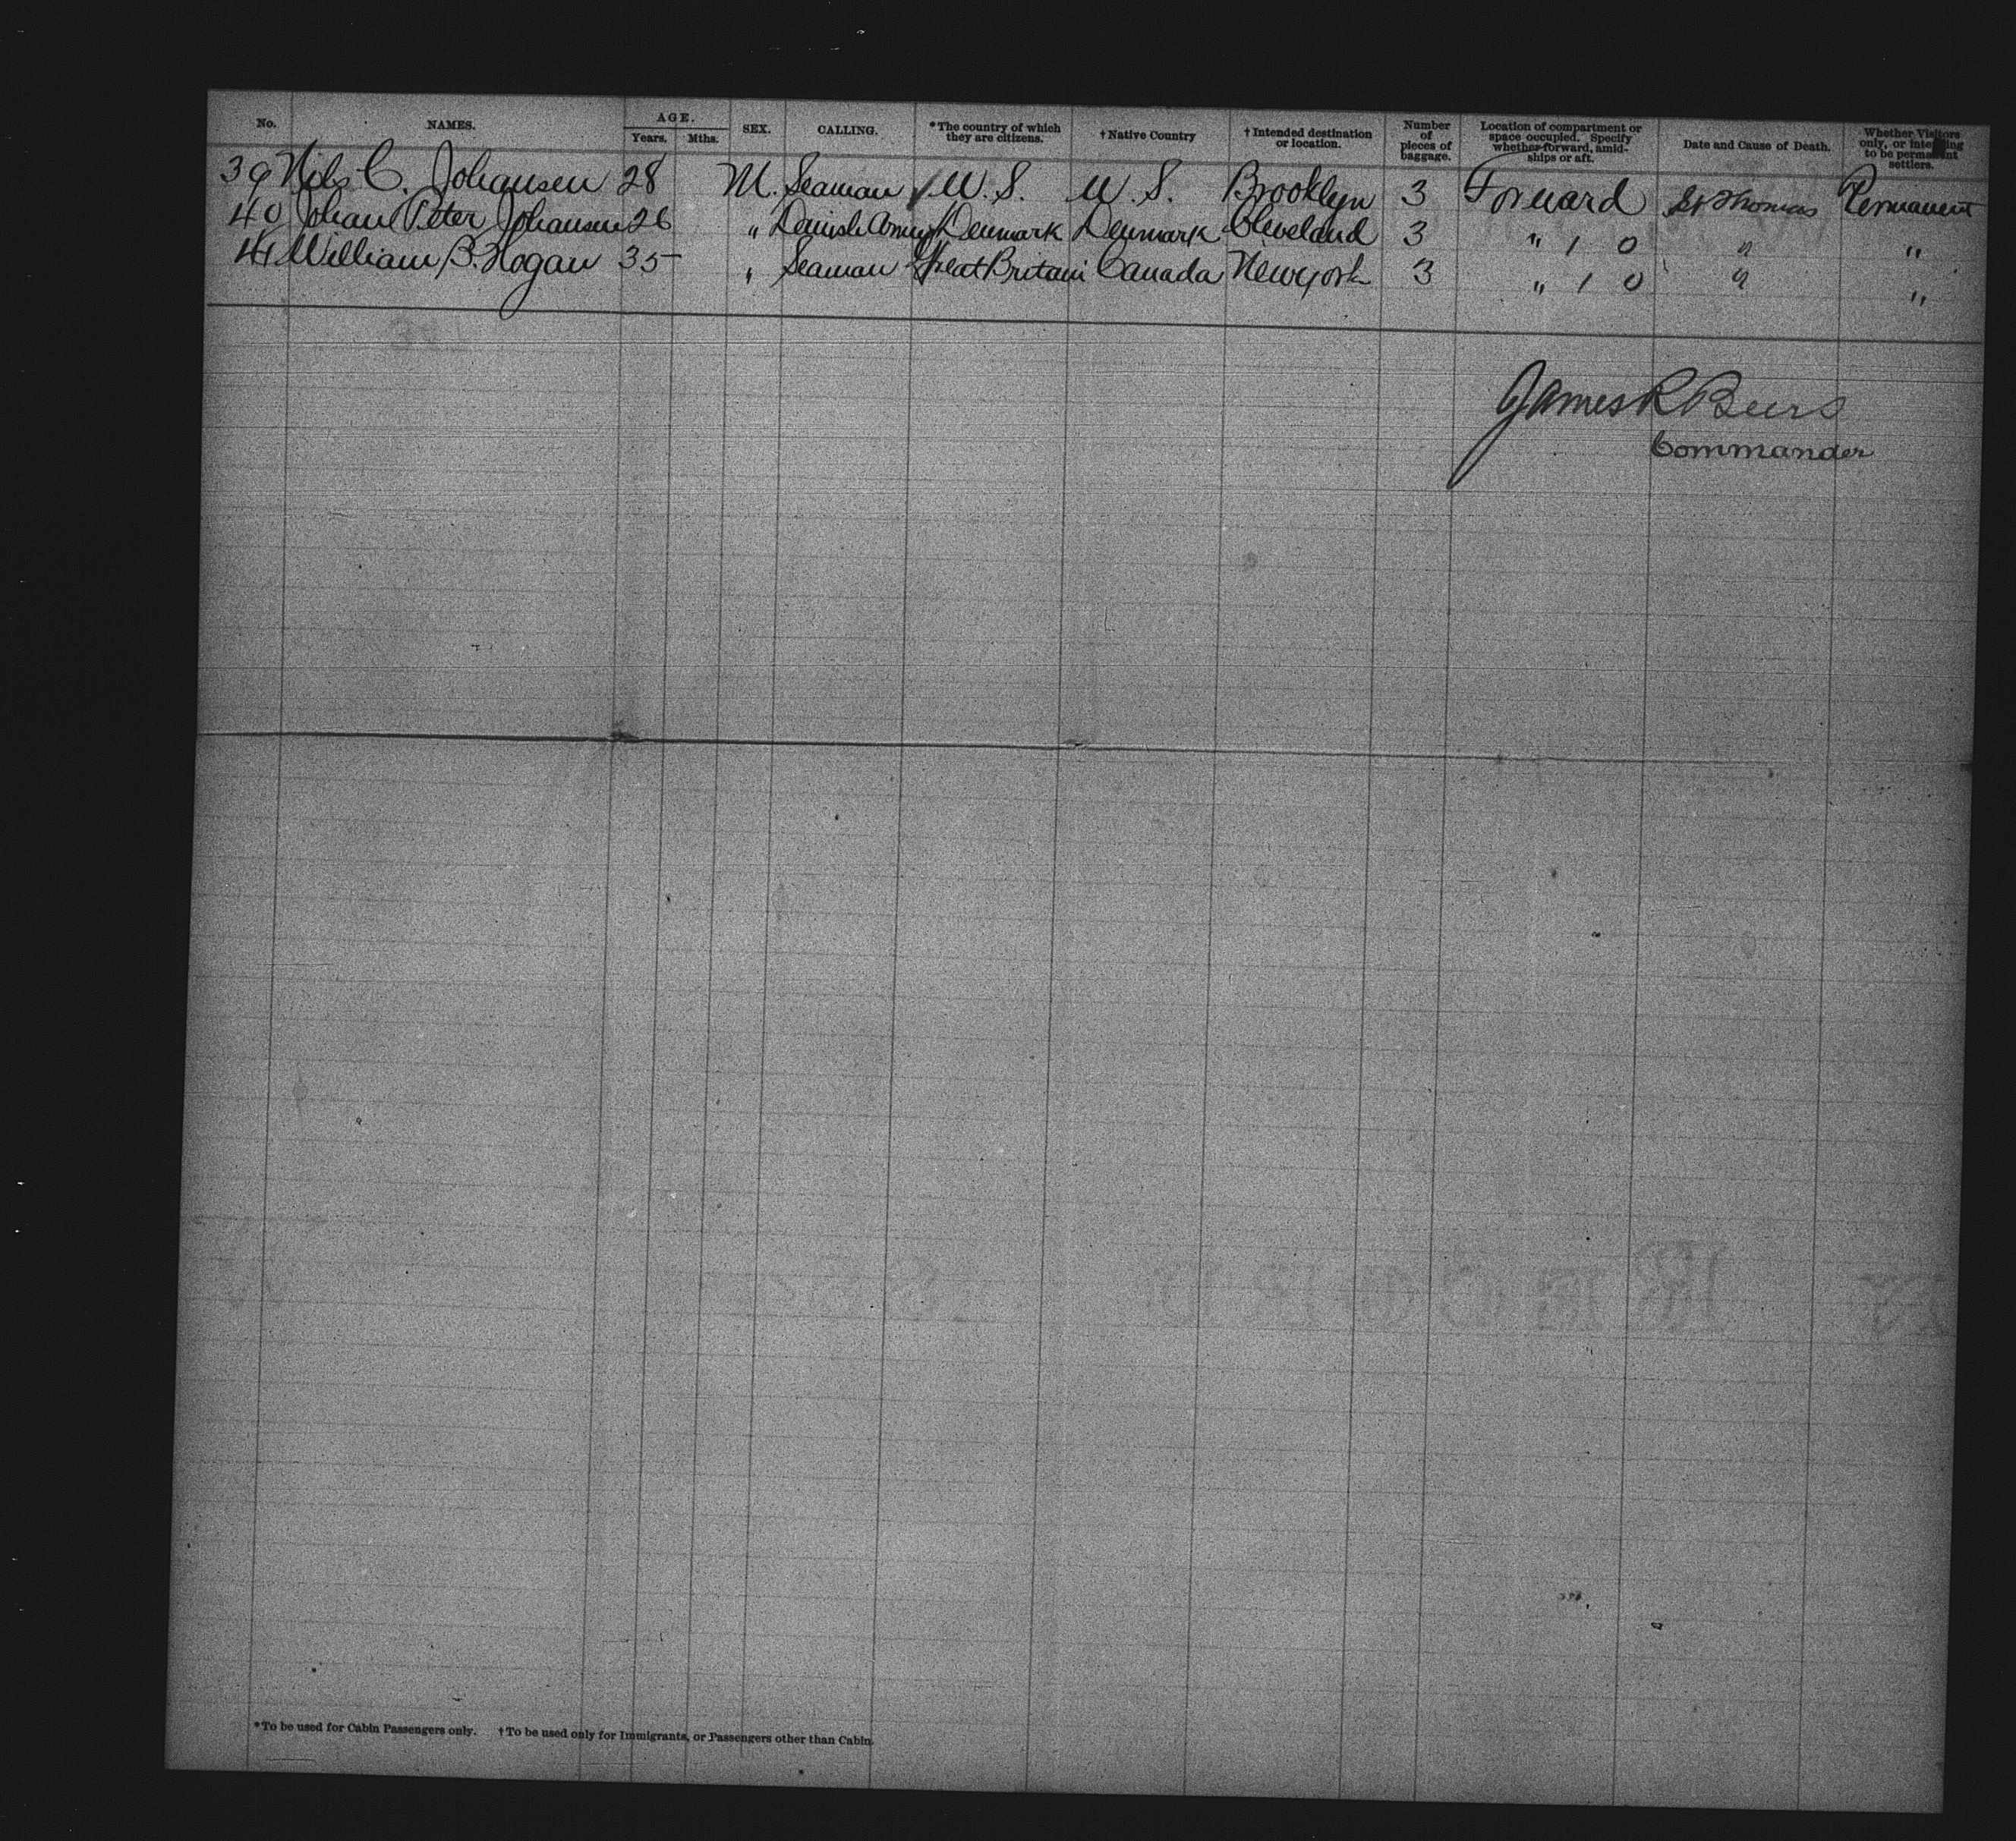 No. NAMES. AGE. Years. Mths. SEX. CALLING. *The country of which they are citizens. †Native Country †Intended destination or location. Number of pieces of baggage. Location of compartment or space occupied. Specify whether forward, amidships or aft. Date and Cause of Death. Whether Visitors only, or intending to be permanent settlers.
39 Niels C. Johansen 28 M. Seaman U.S. U.S. Brooklyn 3 Forward St Thomas Permanent
40 Johan Peter Johansen 26 " Danish Army Denmark Denmark Cleveland 3 " 1 0 " "
41 William B. Hogan 35 " Seaman Great Britain Canada New York 3 " 1 0 " "
James R Beers
Commander
*To be used for Cabin Passengers only. †To be used only for Immigrants, or Passengers other than Cabin.